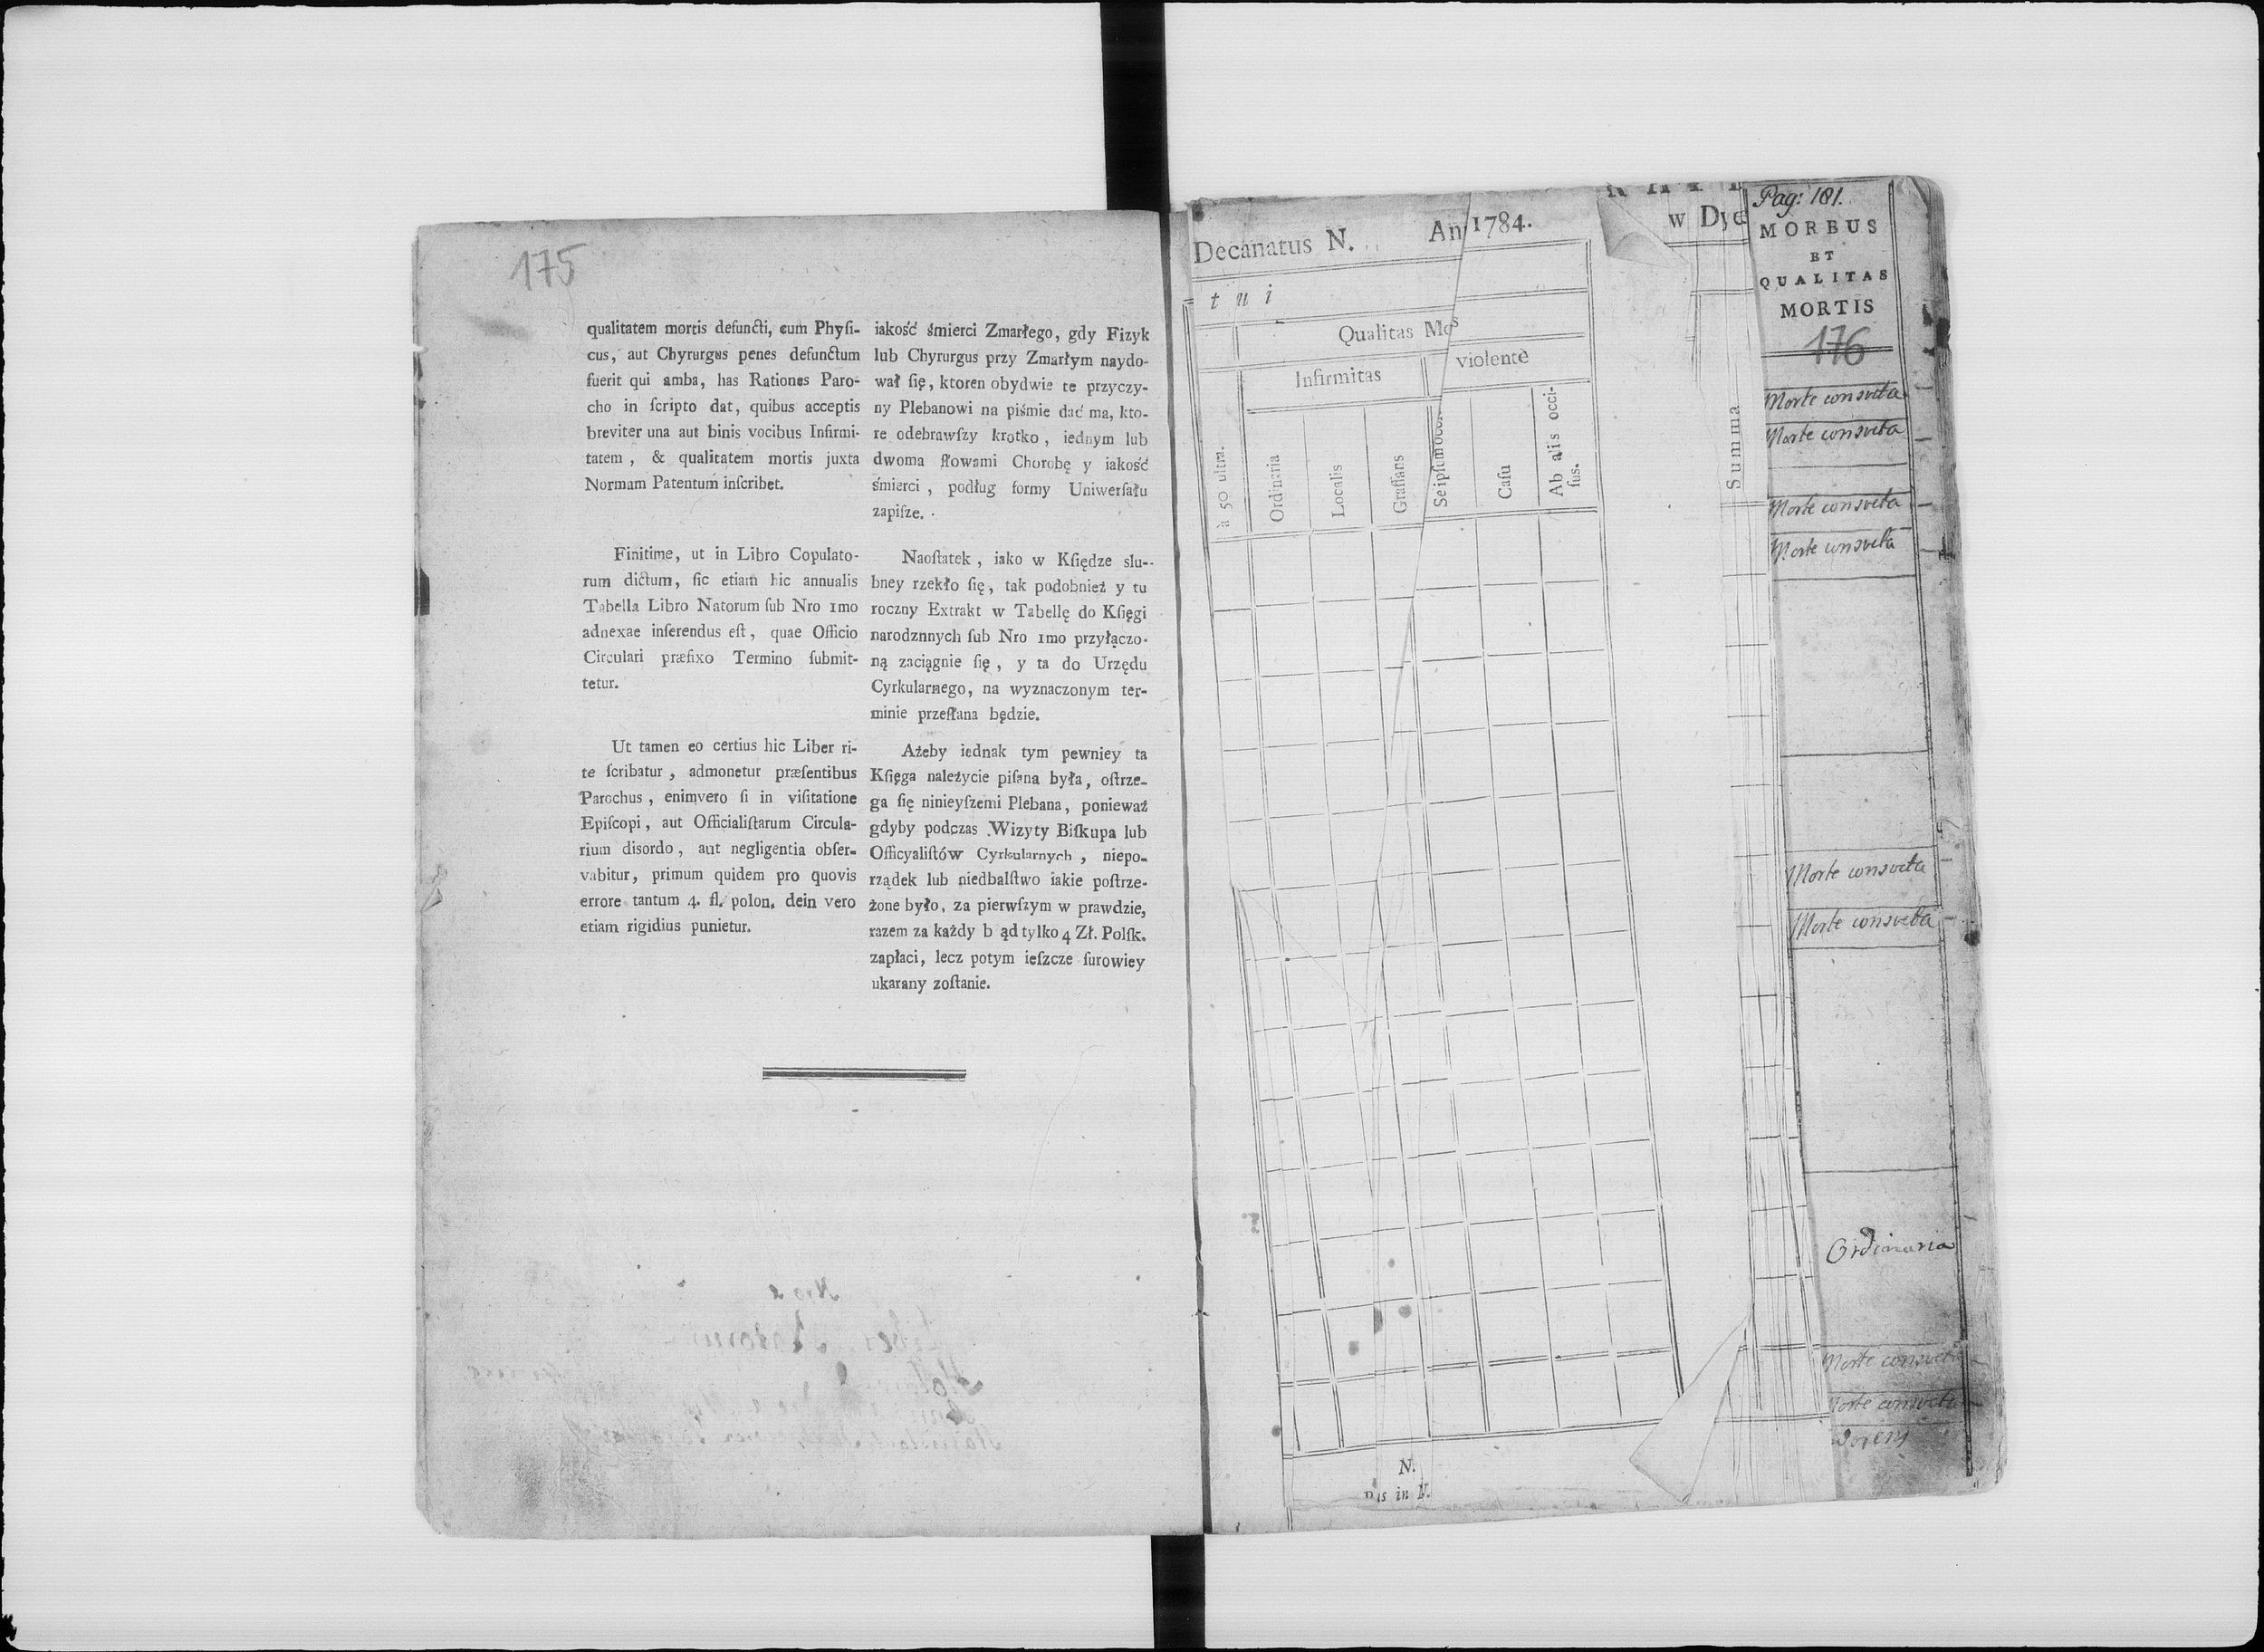 175
qualitatem mortis defuncti, cum Phyſi-
cus, aut Chyrurgus penes defunctum
fuerit qui amba, has Rationes Paro-
cho in ſcripto dat, quibus acceptis
breviter una aut binis vocibus Infirmi-
tatem, & qualitatem mortis juxta
Normam Patentum inſcribet.
Finitime, ut in Libro Copulato-
rum dictum, ſic etiam hic annualis
Tabella Libro Natorum ſub Nro 1mo
adnexae inferendus eſt, quae Officio
Circulari præfixo Termino ſubmit-
tetur.
Ut tamen eo certius hic Liber ri-
te ſcribatur, admonetur præſentibus
Parochus, enimvero ſi in viſitatione
Epiſcopi, aut Officialiſtarum Circula-
rium disordo, aut negligentia obſer-
vabitur, primum quidem pro quovis
errore tantum 4. fl. polon. dein vero
etiam rigidius punietur.
iakość śmierci Zmarłego, gdy Fizyk
lub Chyrurgus przy Zmarłym naydo-
wał ſię, ktoren obydwie te przyczy-
ny Plebanowi na piśmie dać ma, kto-
re odebrawſzy krotko, iednym lub
dwoma ſłowami Chorobę y iakość
śmierci, podług formy Uniwerſału
zapiſze.
Naoſtatek, iako w Kſiędze slu-
bney rzekło ſię, tak podobnież y tu
roczny Extrakt w Tabellę do Kſięgi
narodznnych ſub Nro 1mo przyłączo-
ną zaciągnie ſię, y ta do Urzędu
Cyrkularnego, na wyznaczonym ter-
minie przeſłana będzie.
Ażeby iednak tym pewniey ta
Kſięga należycie piſana była, oſtrze-
ga ſię ninieyſzemi Plebana, ponieważ
gdyby podczas Wizyty Biſkupa lub
Officyaliſtów Cyrkularnych, niepo-
rządek lub niedbalſtwo iakie poſtrze-
żone było, za pierwſzym w prawdzie,
razem za każdy b ąd tylko 4 Zł. Polſk.
zapłaci, lecz potym ieſzcze ſurowiey
ukarany zoſtanie.
Decanatus N. An 1784.
t u i
Qualitas Mo s
Infirmitas
violente
à 50 ultra.
Ordinaria
Localis
Graſſans
Se ipſum occi
Caſu
Ab aliis occi-
ſus.
N.
is in N.
w Dye
Summa
Pag: 181.
MORBUS
ET
QUALITAS
MORTIS
176
Morte consveta
Morte consveta
Morte consveta
Morte consveta
Morte consveta
Morte consveta
Ordinaria
Morte consveta
Morte consveta